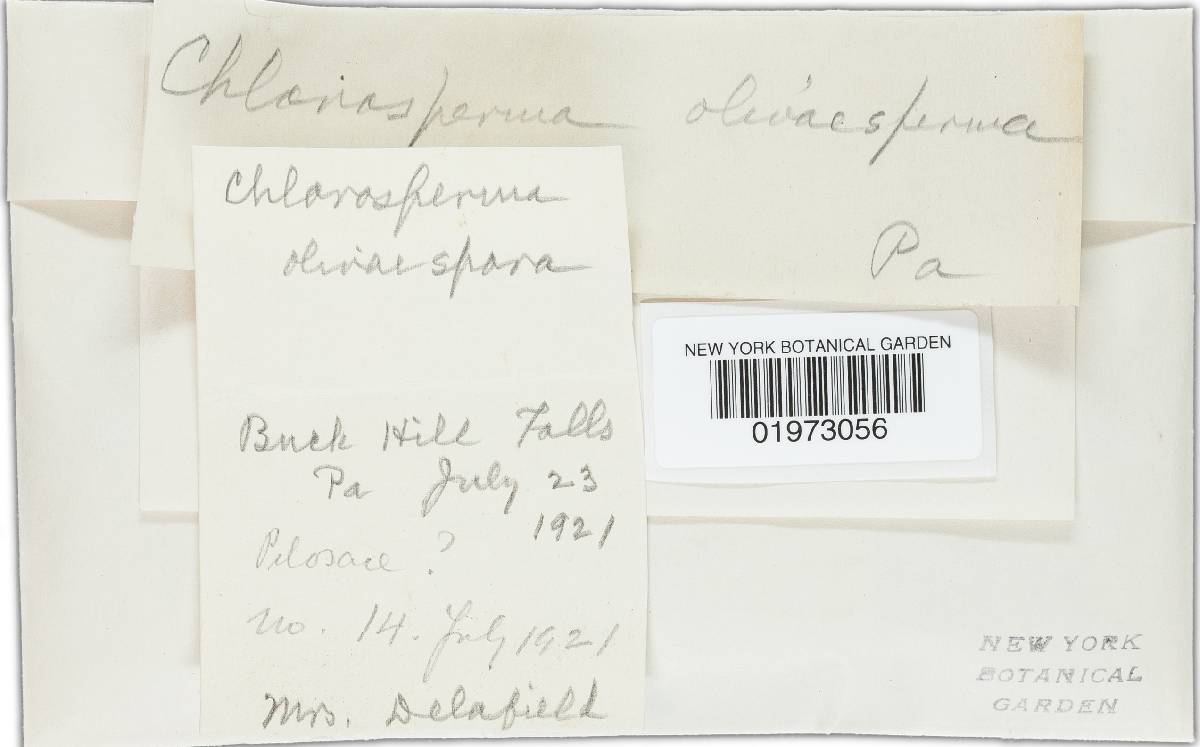 Chlorosperma olivaesperma
Pa
Chlorosperma
olivaespora
Buck Hill Falls
Pa July 23
1921
Pilosace ?
No. 14. July 1921
Mrs. Delafield
NEW YORK BOTANICAL GARDEN
01973056
NEW YORK
BOTANICAL
GARDEN